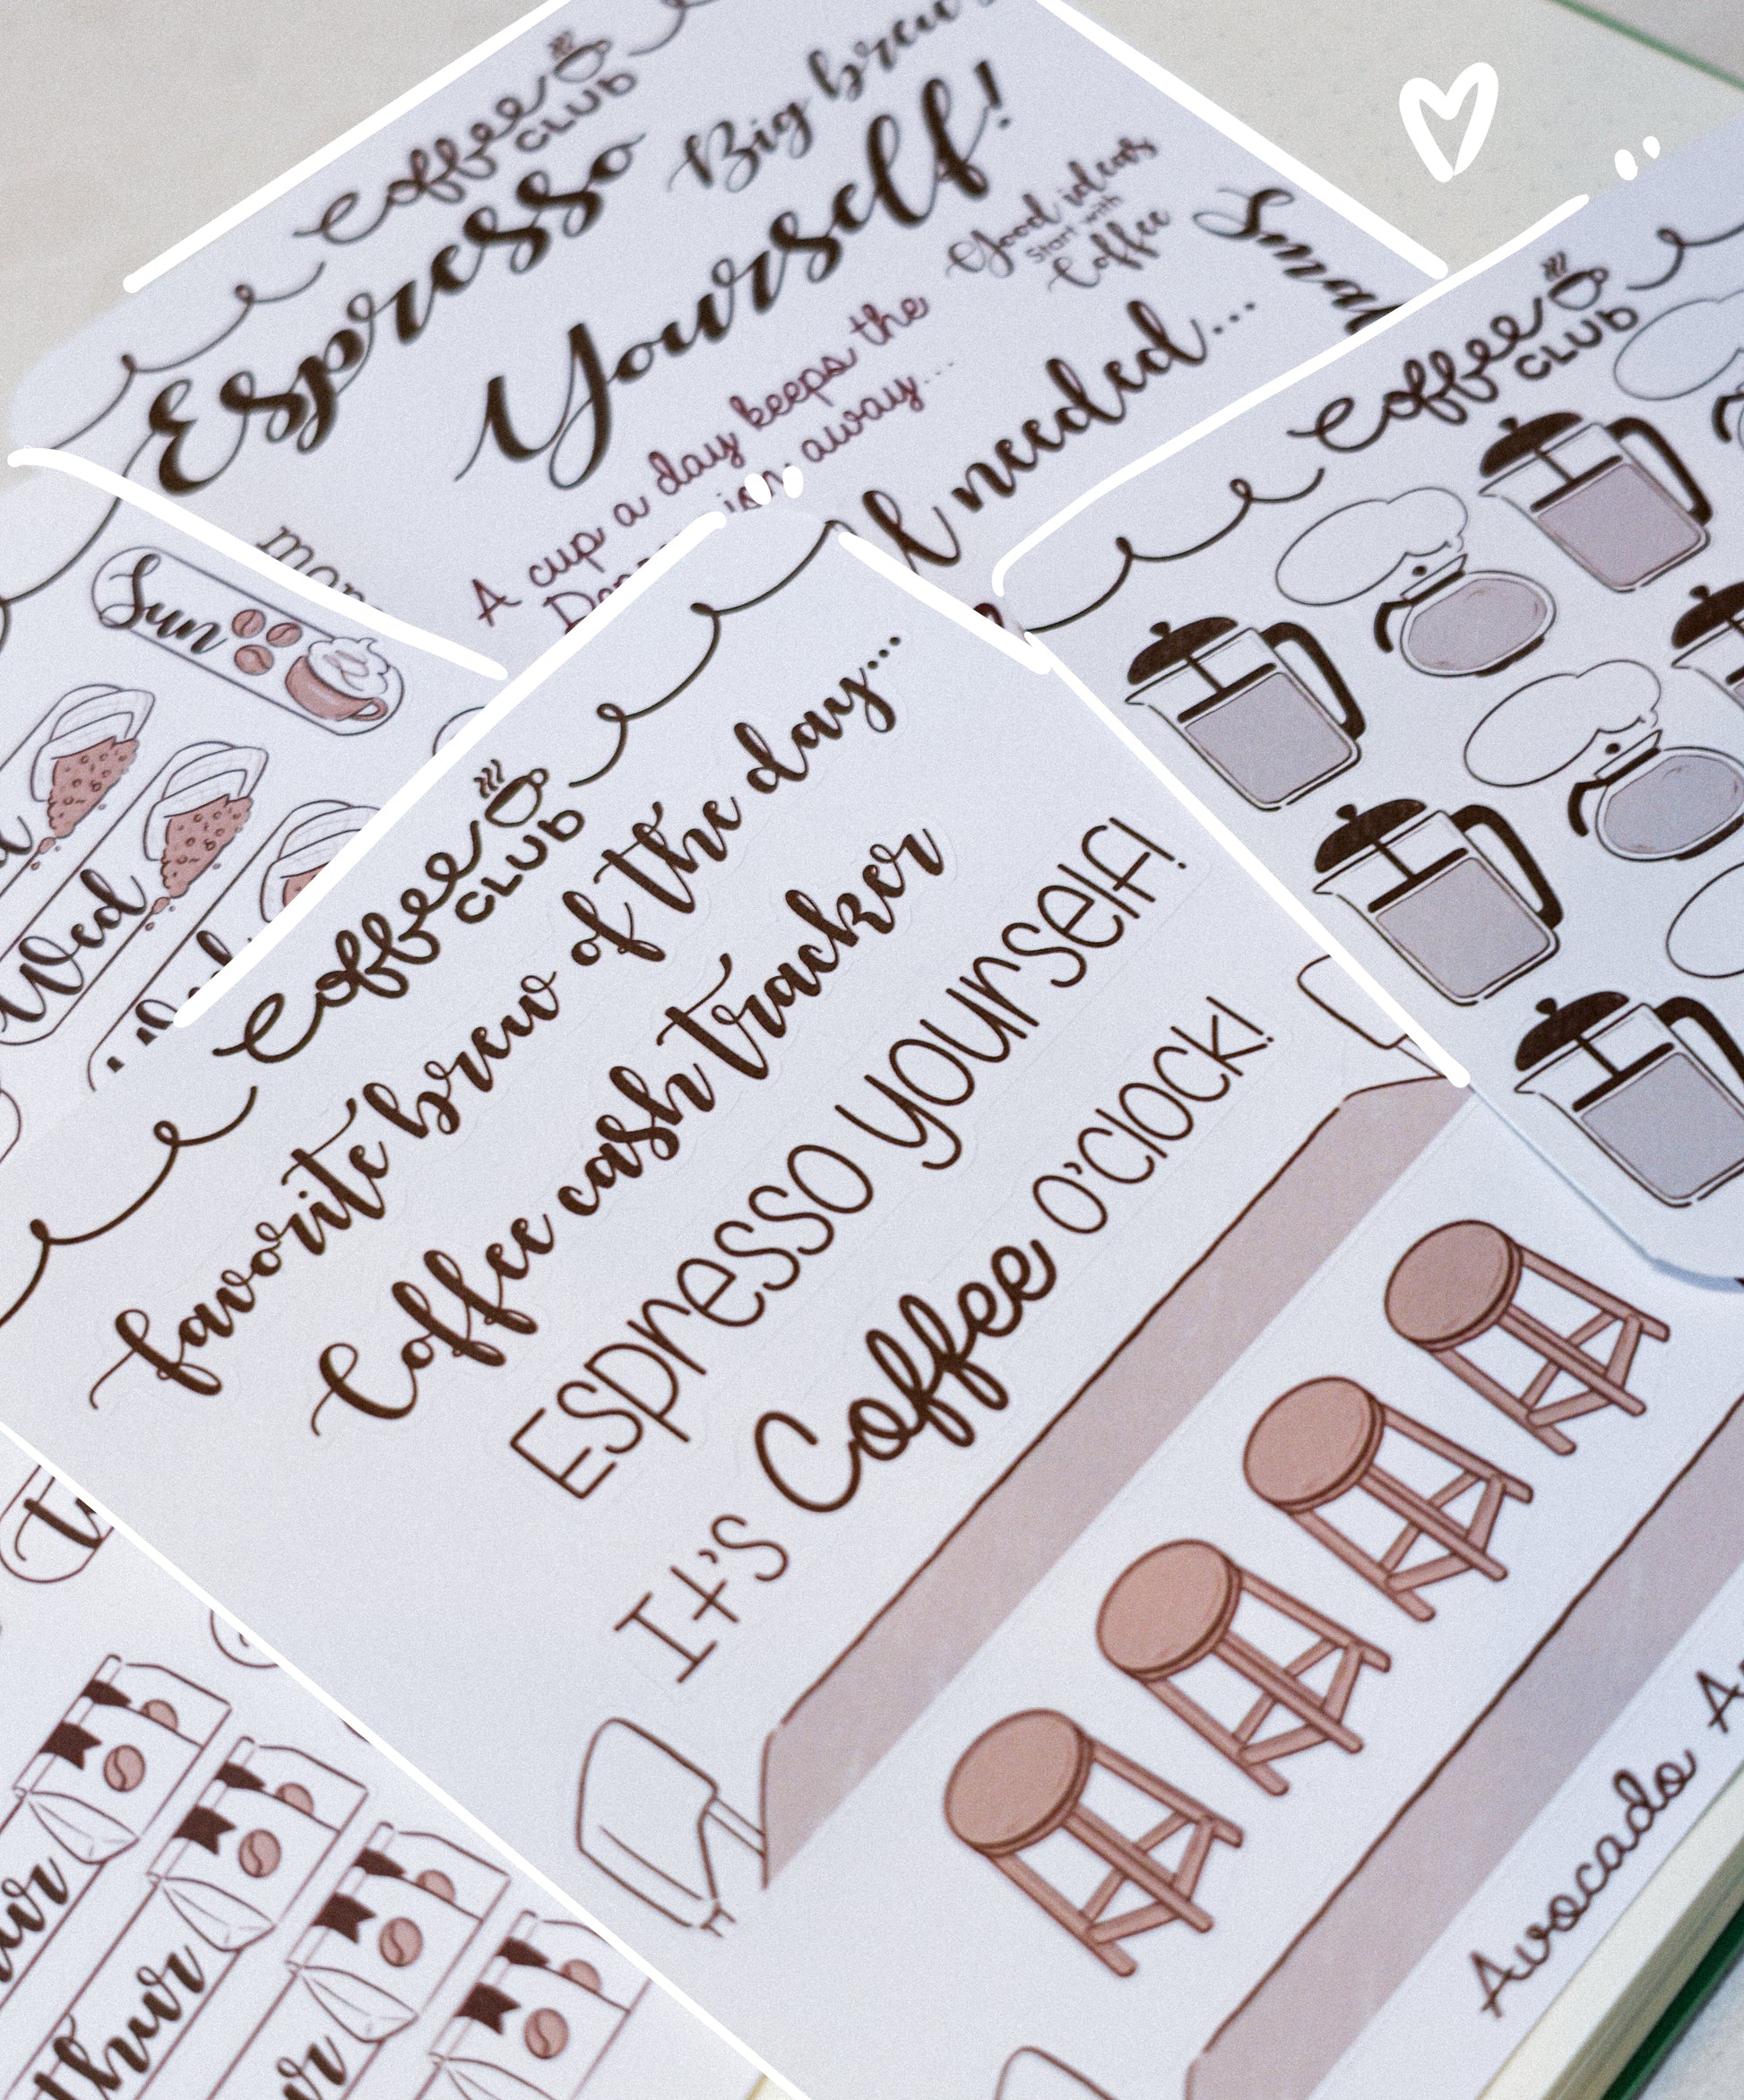 Coffee
CLUB
Espresso
Yourself!
Big brew
Good ideas
Start with
Coffee
A cup a day keeps the
away...
needed...
Coffee
CLUB
Sun
Wed
Coffee
CLUB
favorite brew of the day...
Coffee cash tracker
Espresso yourself!
It's Coffee o'clock!
Avocado